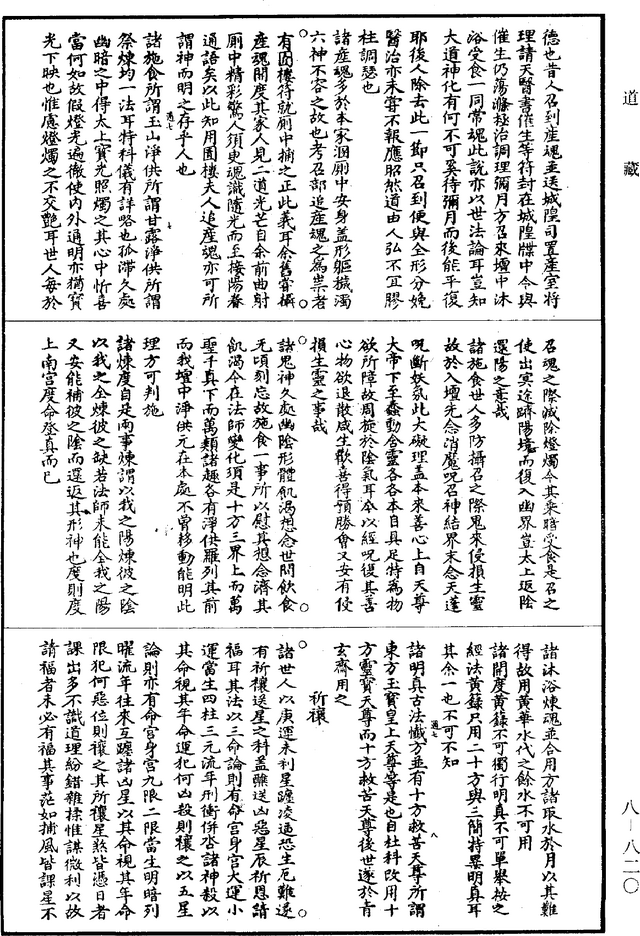 道藏
八—八二〇
德也昔人召到產魂並送城隍司置產室將
理請天醫書催生等符封在城隍牒中令與
催生仍蕩滌極治調理彌月方召來壇中沐
浴受食一同常魂此說亦以世法論耳豈知
大道神化有何不可奚待彌月而後能平復
耶後人除去此一節只召到便與全形分娩
醫治亦未嘗不報應昭然道由人弘不宜膠
柱調瑟也
諸產魂多於本家溷廁中安身蓋形軀穢濁
六神不容之故也考召部追產魂之為祟者
有圊樓符就廁中捕之正此義耳余舊嘗攝
產魂開度其家人見二道光芒自余前曲射
廁中精彩驚人須臾魂識隨光而至接陽眷
通語矣以此知用圊樓夫人追產魂亦可所
謂神而明之存乎人也
諸施食所謂玉山淨供所謂甘露淨供所謂
祭煉均一法耳特科儀有詳略也孤滯久處
幽暗之中得太上寶光照燭之其心中忻喜
當何如故假燈光遍徹使內外通明亦猶寶
光下映也惟慮燈燭之不交艷耳世人每於
召魂之際滅除燈燭令其來暗受食是召之
使出冥途躋陽境而復入幽界豈太上返陰
還陽之意哉
諸施食世人多防攝召之際鬼來侵損生靈
故於入壇先念消魔咒召神結界末念天蓬
咒斷妖氛此大礙理蓋本來善心上自天尊
大帝下至蠢動含靈各各本自具足特為物
欲所障故周旋於陰氣耳今以經咒復其善
心物欲退散咸生歡喜得預勝會又安有侵
損生靈之事哉
諸鬼神久處幽陰形體飢渴想念世間飲食
无頃刻忘故施食一事所以慰其想念濟其
飢渴今在法師變化須是十方三界上而萬
聖千真下而萬類諸趣各有淨供羅列其前
而我壇中淨供元在本處不曾移動能明此
理方可判施
諸煉度自是兩事煉謂以我之陽煉彼之陰
以我之全煉彼之缺若法師未能全我之陽
又安能補彼之陰而還返其形神也度則度
上南宮度命登真而已
諸沐浴煉魂並合用方諸取水於月以其難
得故用黃華水代之餘水不可用
諸開度黃籙不可獨行明真不可單舉按之
經法黃籙只用二十方與三簡特異明真耳
其余一也不可不知
諸明真古法懺方並有十方救苦天尊所謂
東方玉寶皇上天尊等是也自杜科改用十
方靈寶天尊而十方救苦天尊後世遂於青
玄齋用之
祈禳
諸世人以庚運未利星躔凌逼恐生厄難遂
有祈禳送星之科蓋醮送凶惡星辰祈恩請
福耳其法以三命論則有命宮身宮大運小
運當生四柱三元流年刑衝併沓諸神殺以
其命視其年命運犯何凶殺則禳之以五星
論則亦有命宮身宮九限二限當生明暗列
曜流年往來互躔諸凶星以其命視其年命
限犯何惡位則禳之其所禳星煞皆憑日者
課出多不識道理紛錯雜揉惟謀微利以故
請福者未必有福其事茫如捕風皆課星不